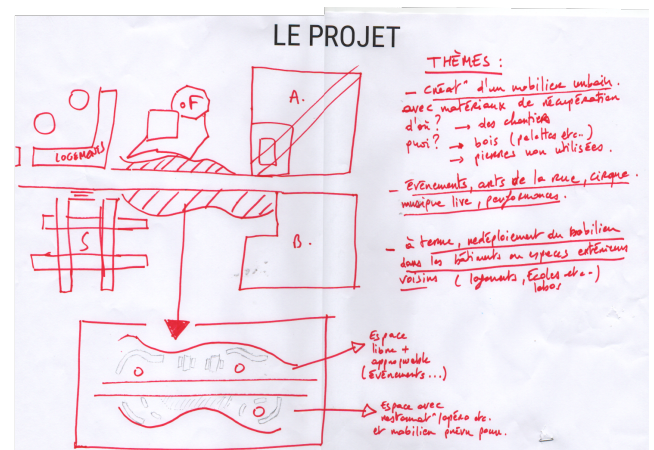 LE PROJET
THÈMES :
- CRÉAT° d'un mobilier urbain.
avec matériaux de récupération
d'où ? → des chantiers
quoi ? → bois (palettes etc..)
→ pierres non utilisées.
- Événements, arts de la rue, cirque.
musique live, performances.
- à terme, redéploiement du mobilier
dans les bâtiments ou espaces extérieurs
voisins (logements, Écoles etc-)
labos
oF
A.
LOGEMENTS
S
B.
Espace
libre +
appropriable
(ÉVÉNEMENTS...)
Espace avec
restaurat°/apéro etc.
et mobilier prévu pour.